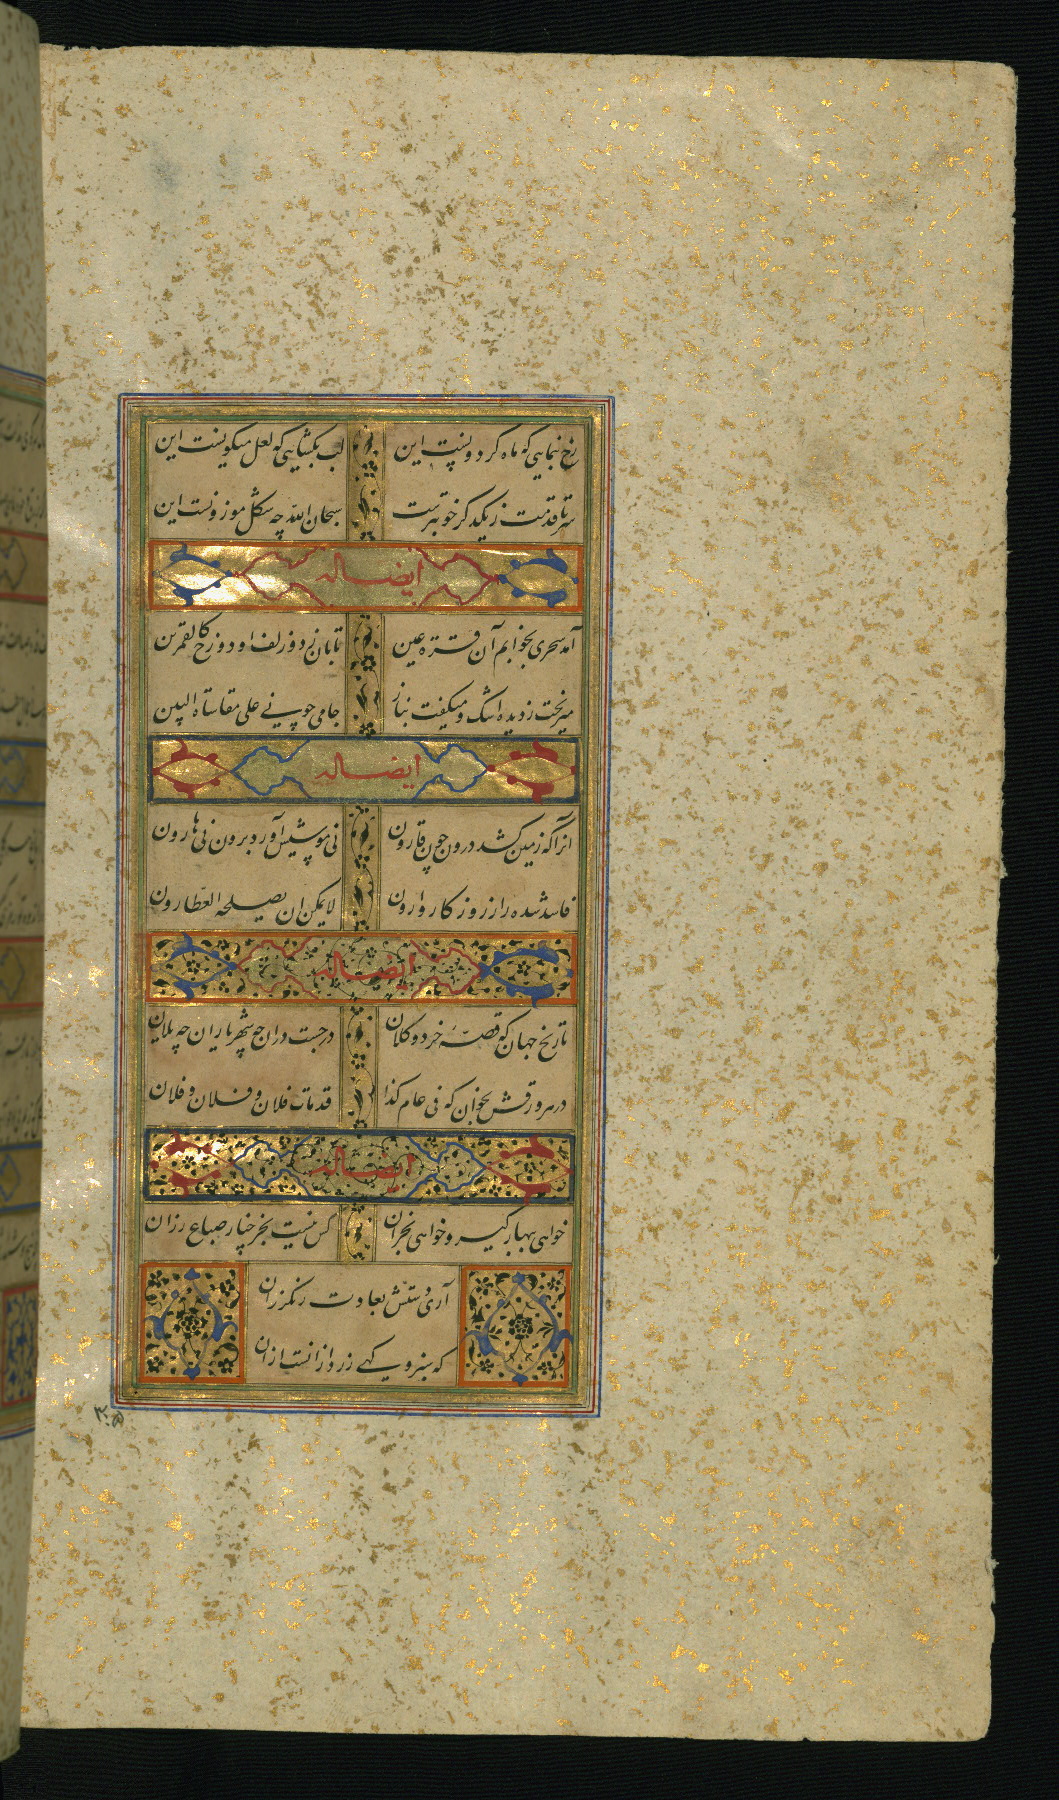 رخ نمایی که ماه گردونست این لب بگشایی که لعل میگونست این
سر تا قدمت ز یکدگر خوبترست سبحان الله چه شکل موزونست این
ایضا له
آمد سحری بخوابم آن قرة عین تابان ز دو زلف او دو رخ کالقمرین
میریخت ز دیده اشک و میگفت بناز جامی چونی علی مقاساة البین
ایضا له
انرا که زمین کشد درون چون قارون نی موسیش آورد برون نی هارون
فاسد شده را ز روزگار وارون لا یمکن ان یصلحه العطارون
ایضا له
تاریخ جهان که قصه خرد و کلان درجست در ان چه شهریاران چه یلان
در هر ورقش بخوان که فی عام کذا قد مات فلان و فلان و فلان
ایضا له
خواهی بهار گیر و خواهی بخزان کس نیست بجز چنار صباغ رزان
آری دستش بعادت رنگرزان
که سبز و گهی زرد ازانست ازان